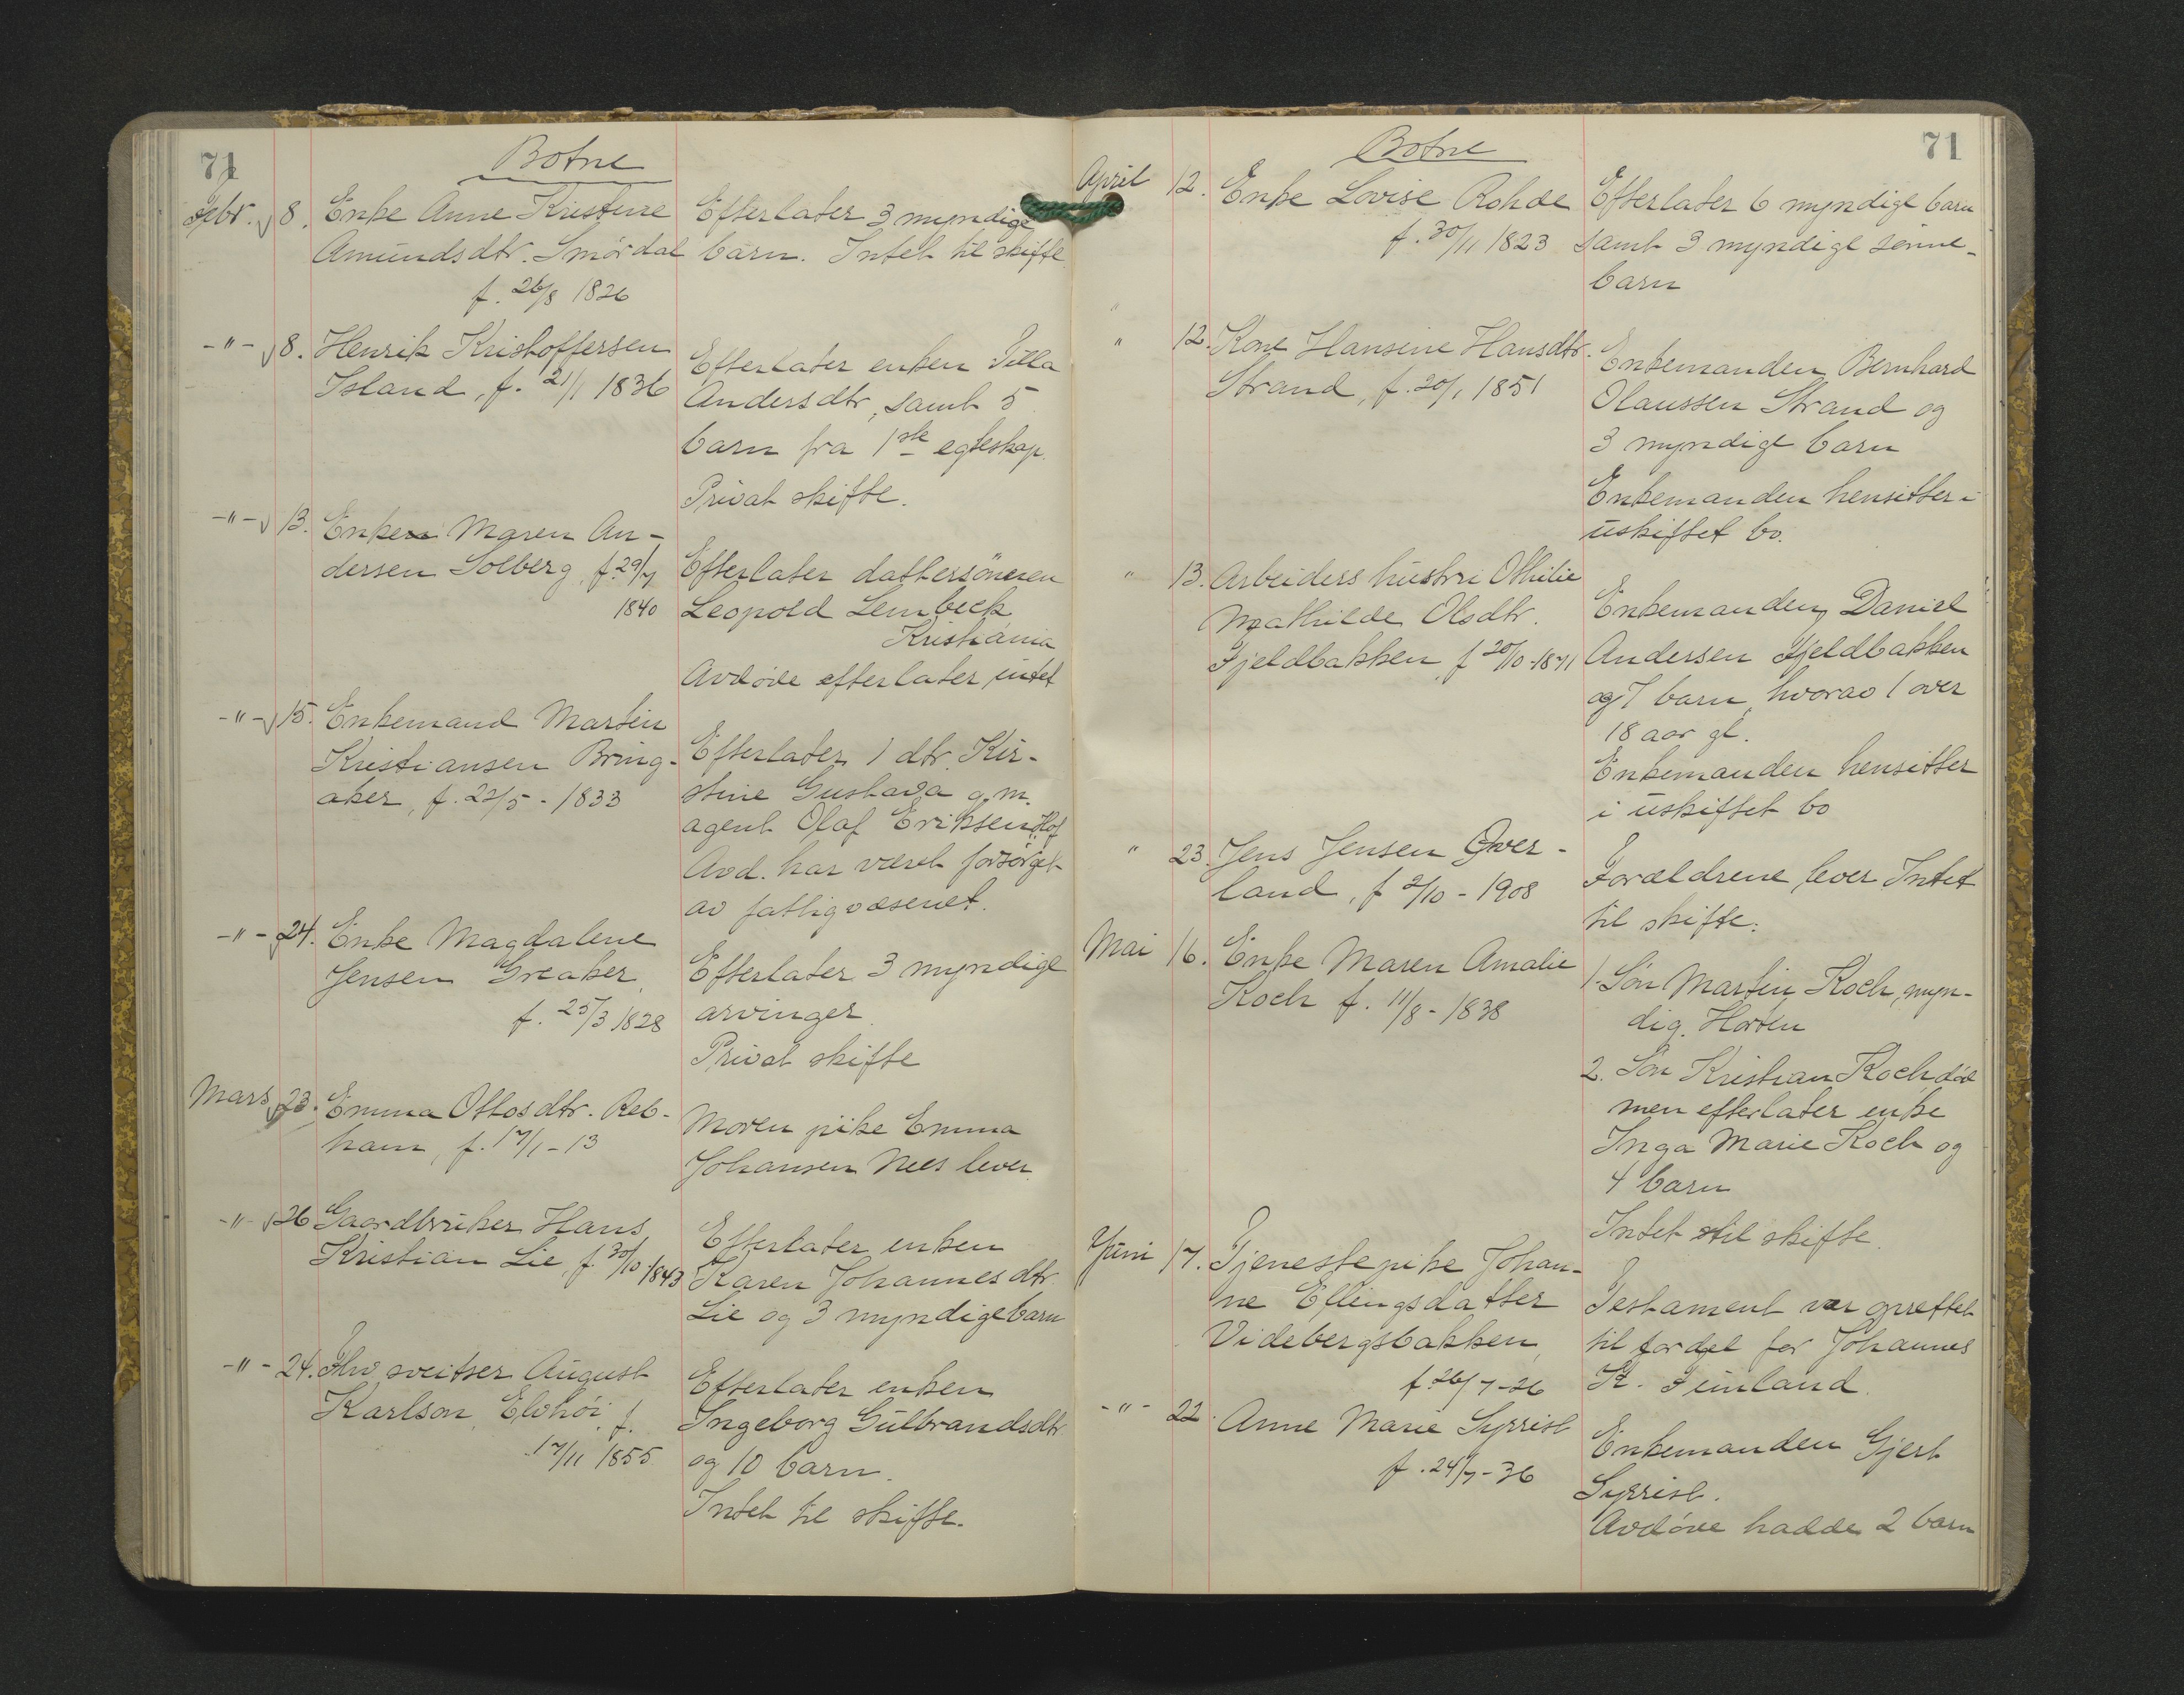 71
Botne
Febr. 8. Enke Anne Kristine
Amundsdtr. Smørdal
f. 26/8 1826
Efterlater 3 myndige
barn. Intet til skifte
-"- 8. Henrik Kristoffersen
Island, f. 21/1 1836
Efterlater enken Pilla
Andersdtr, samt 5
barn fra 1ste egteskap.
Privat skifte.
-"- 13. Enken Maren An-
dersen Solberg, f. 29/7
1840
Efterlater dattersønnen
Leopold Lembeck
Kristiania
Avdøde efterlater intet
-"- 15. Enkemand Martin
Kristiansen Bring-
aker, f. 22/5 - 1833
Efterlater 1 dtr. Kir-
stine Gustava g. m.
agent Olaf Eriksen, Hof
Avd. har været forsørget
av fattigvæsenet.
-"- 24. Enke Magdalene
Jensen Greaker,
f. 25/3 1828
Efterlater 3 myndige
arvinger
Privat skifte
Mars 23. Emma Ottosdtr. Reb-
han, f. 17/1 - 13
Moren pike Emma
Johansen Nes lever.
-"- 26 Gaardbruker Hans
Kristian Lie, f. 30/10 1843
Efterlater enken
Karen Johannesdtr.
Lie og 3 myndige barn
-"- 24. Fhv. sveitser August
Karlson, Elvhøi, f.
17/11 1855
Efterlater enken
Ingeborg Gulbrandsdtr
og 10 barn.
Intet til skifte.
71
Botne
April 12. Enke Lovise Rohde
f. 30/11 1823
Efterlater 6 myndige barn
samt 3 myndige sønne-
barn
" 12. Kone Hansine Hansdtr.
Strand, f. 20/1 1851
Enkemanden Bernhard
Olaussen Strand og
3 myndige barn
Enkemanden hensitter i
uskiftet bo.
" 13. Arbeiders hustru Othilie
Mathilde Olsdtr.
Fjeldbakken, f 20/10-1871
Enkemanden, Daniel
Andersen Fjeldbakken
og 7 barn, hvorav 1 over
18 aar gl.
Enkemanden hensitter
i uskiftet bo
" 23. Jens Jensen Øver-
land, f 2/10 - 1908
Forældrene lever. Intet
til skifte.
Mai 16. Enke Maren Amalie
Koch f. 11/8 - 1838
1. Søn Martin Koch, myn-
dig. Horten
2. Søn Kristian Koch, død
men efterlater enke
Inga Marie Koch og
4 barn
Intet til skifte.
Juni 17. Tjenestepike Johan-
ne Ellingsdatter
Videbergsbakken,
f. 26/7-26
Testament var oprettet
til fordel for Johannes
K. Finnland.
-"- 22. Anne Marie Syrrist
f. 24/7-36
Enkemanden Gjert
Syrrist.
Avdøde hadde 2 barn